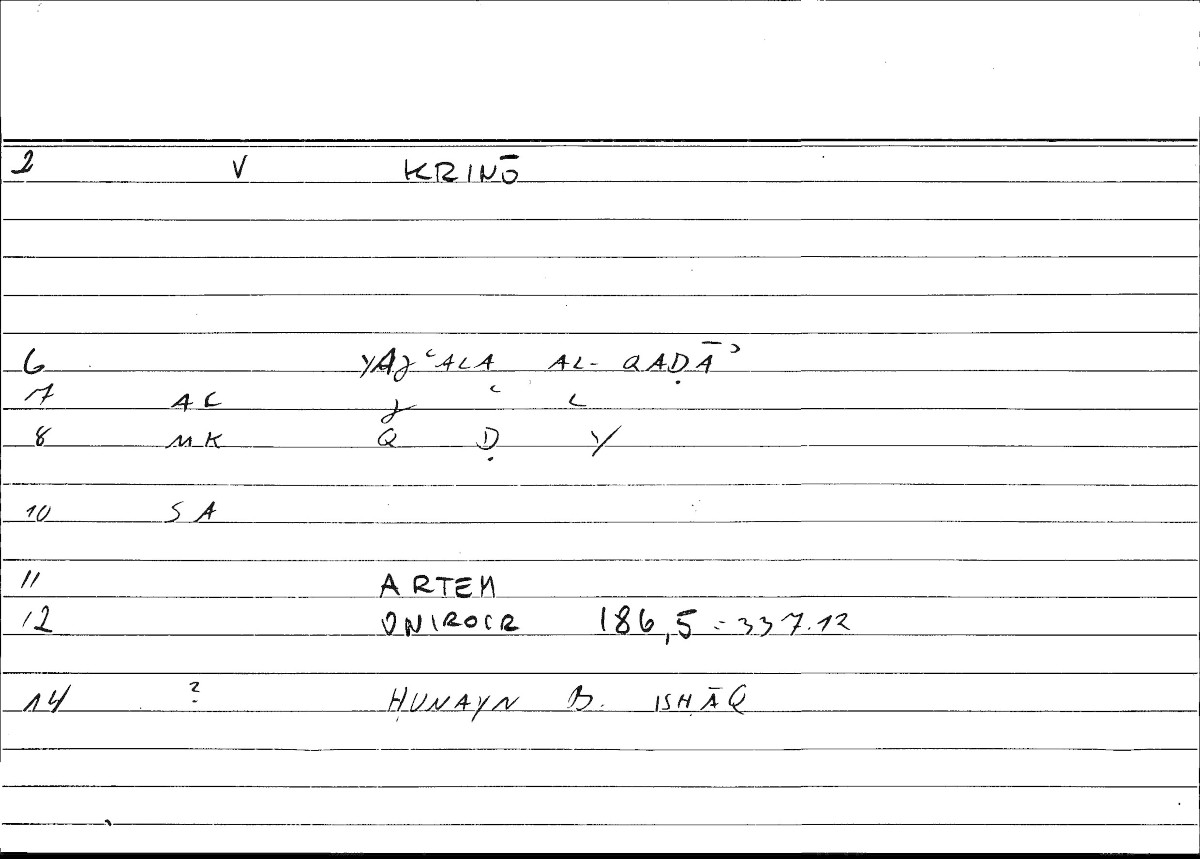 2 V KRINŌ
6 YAJʿALA AL-QAḌĀʾ
7 AC J ʿ L
8 MK Q Ḍ Y
10 SA
11 ARTEM
12 ONIROCR 186,5 = 337.12
14 ? ḤUNAYN B. ISḤĀQ